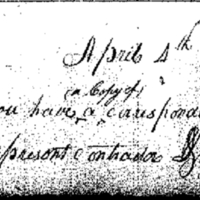 April 4th
(a Copy of)
ou have a correspond
present contrador